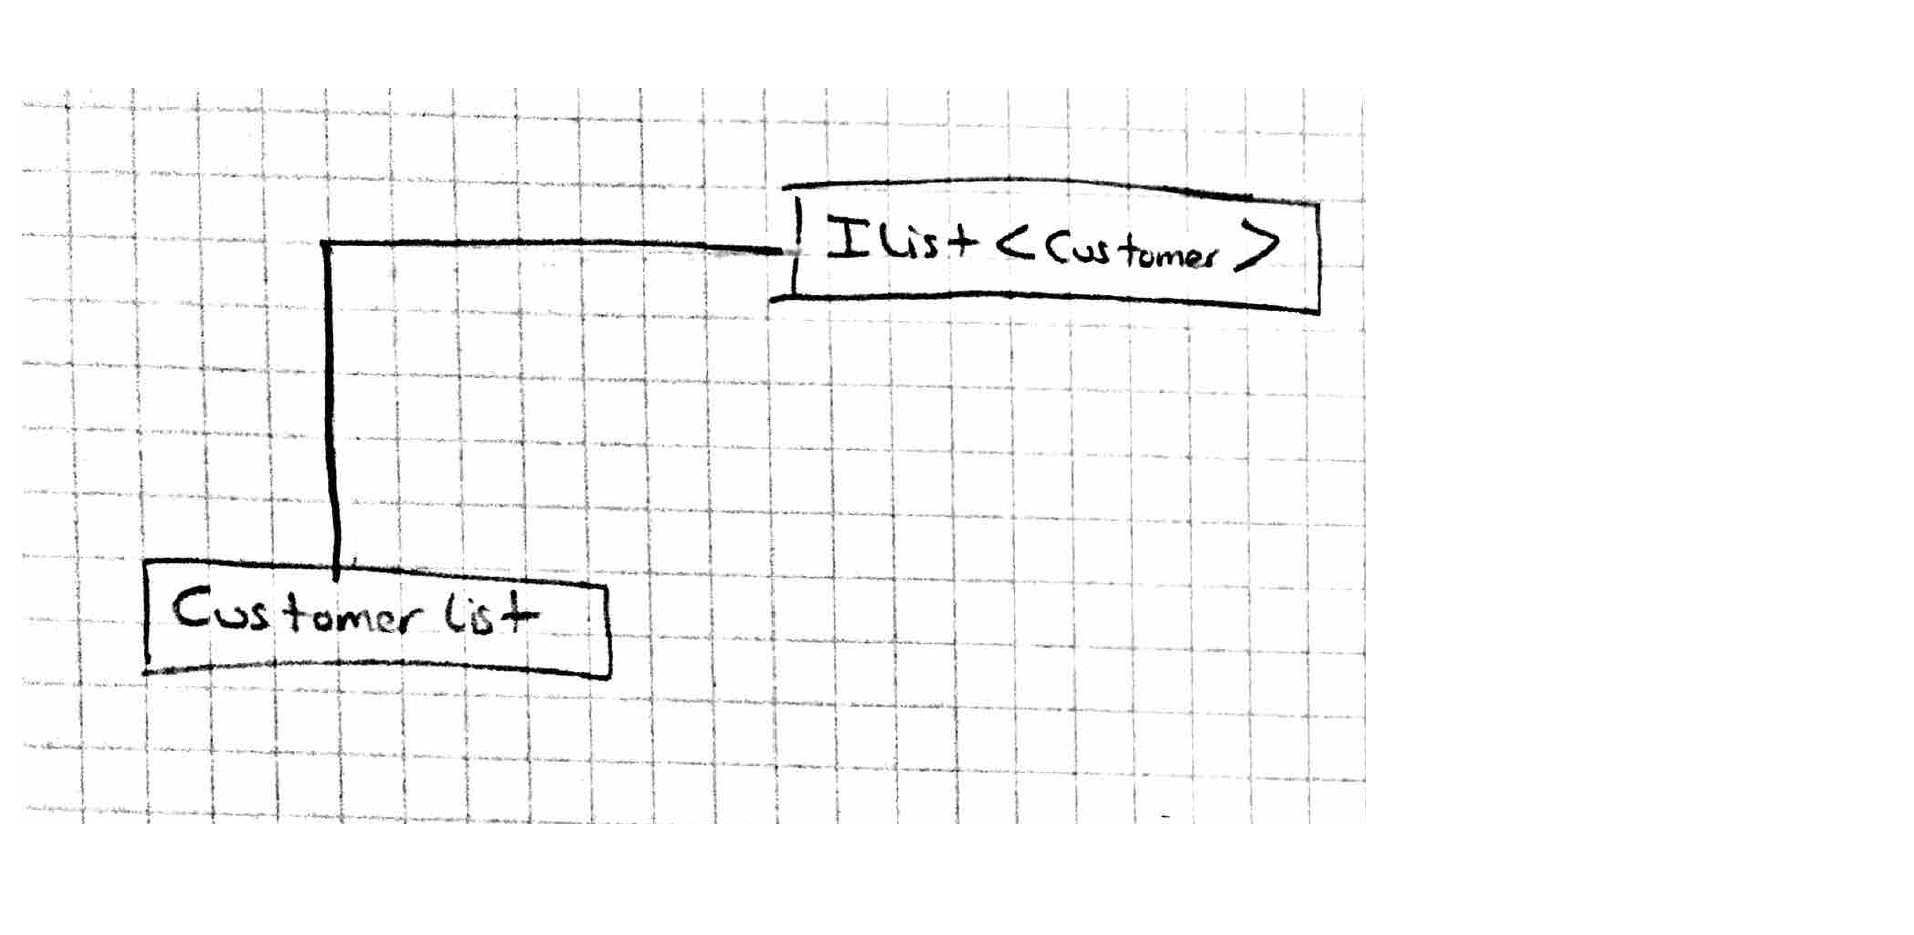 IList <Customer>
Customer list